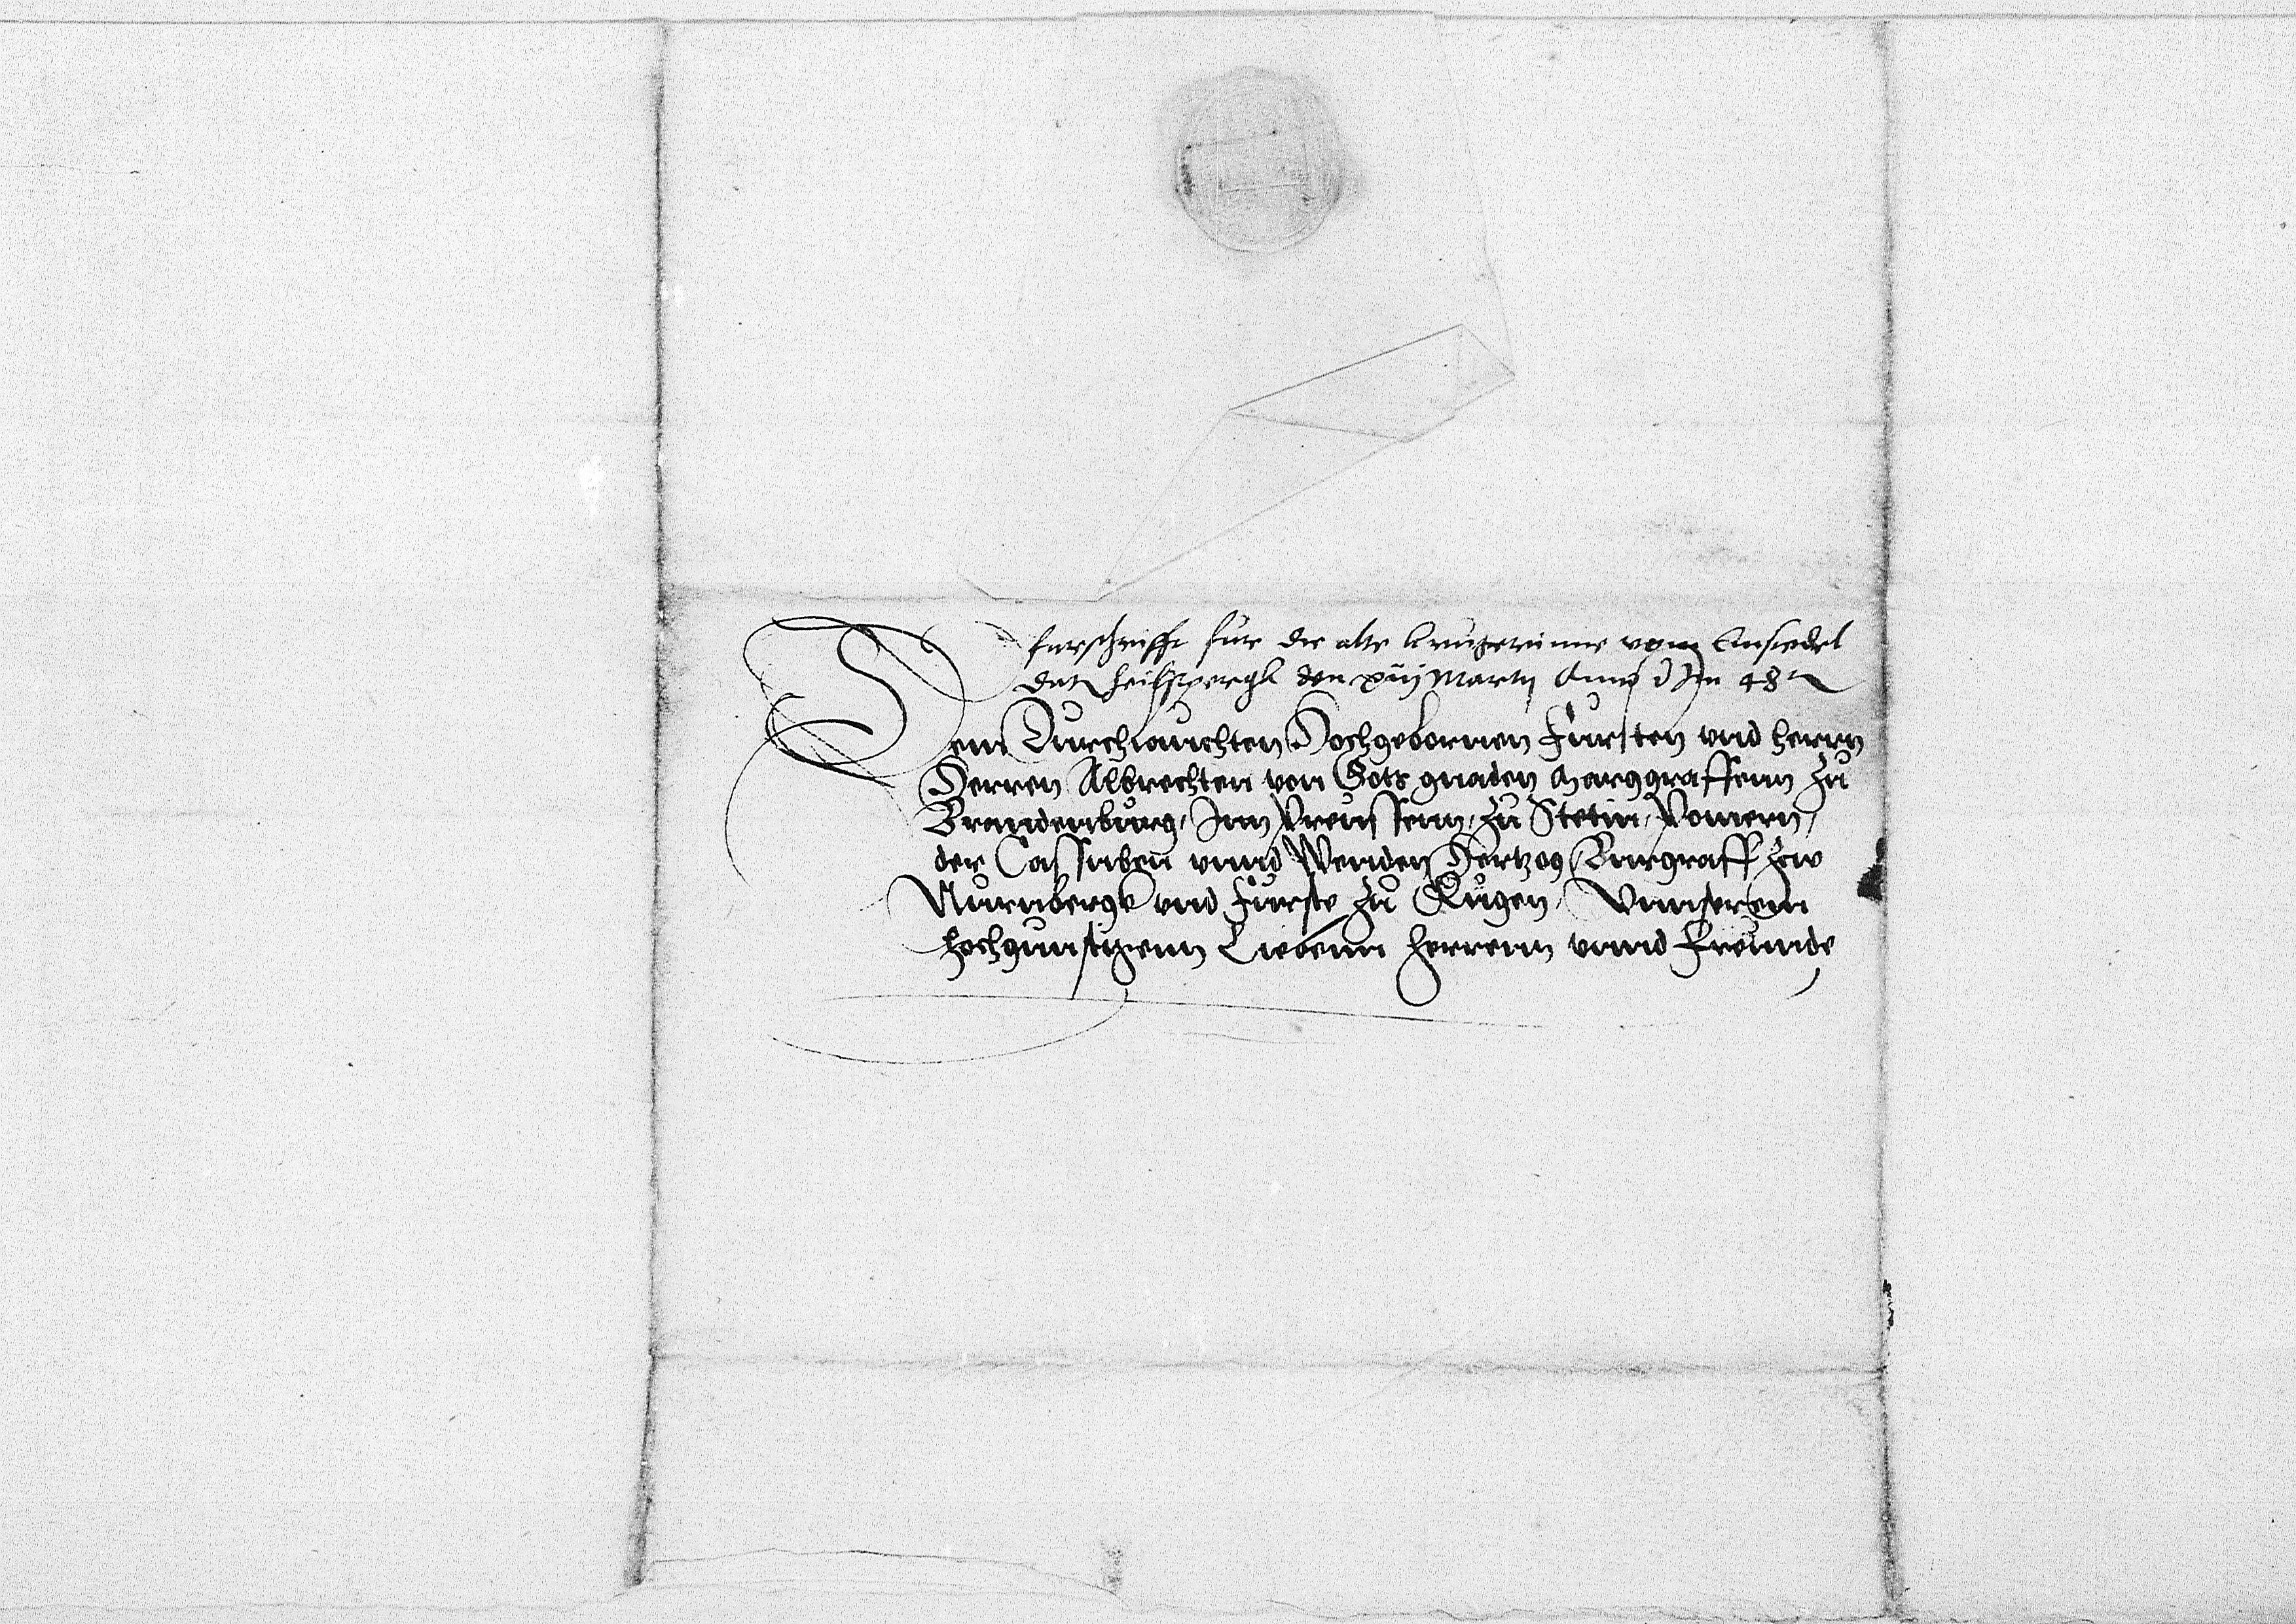 furschrifft fur die alte krugerinne vom Einsiedel
Dat Heilspergk den xiiij Martij Anno d Im 48
Dem Durchlauchten Hochgebornen Fursten vnd herrn
Herren Albrechten von Gots gnaden Marggraffenn zu
Brandenburg, Inn Preussenn, zu Stetin, Pomern,
der Cassuben vnnd Wenden Hertzog Burgraff zcw
Nurnbergk vnd Furste zu Rugen, Vnnserem
hochgunstigenn Liebenn Herrenn vnnd Freunde